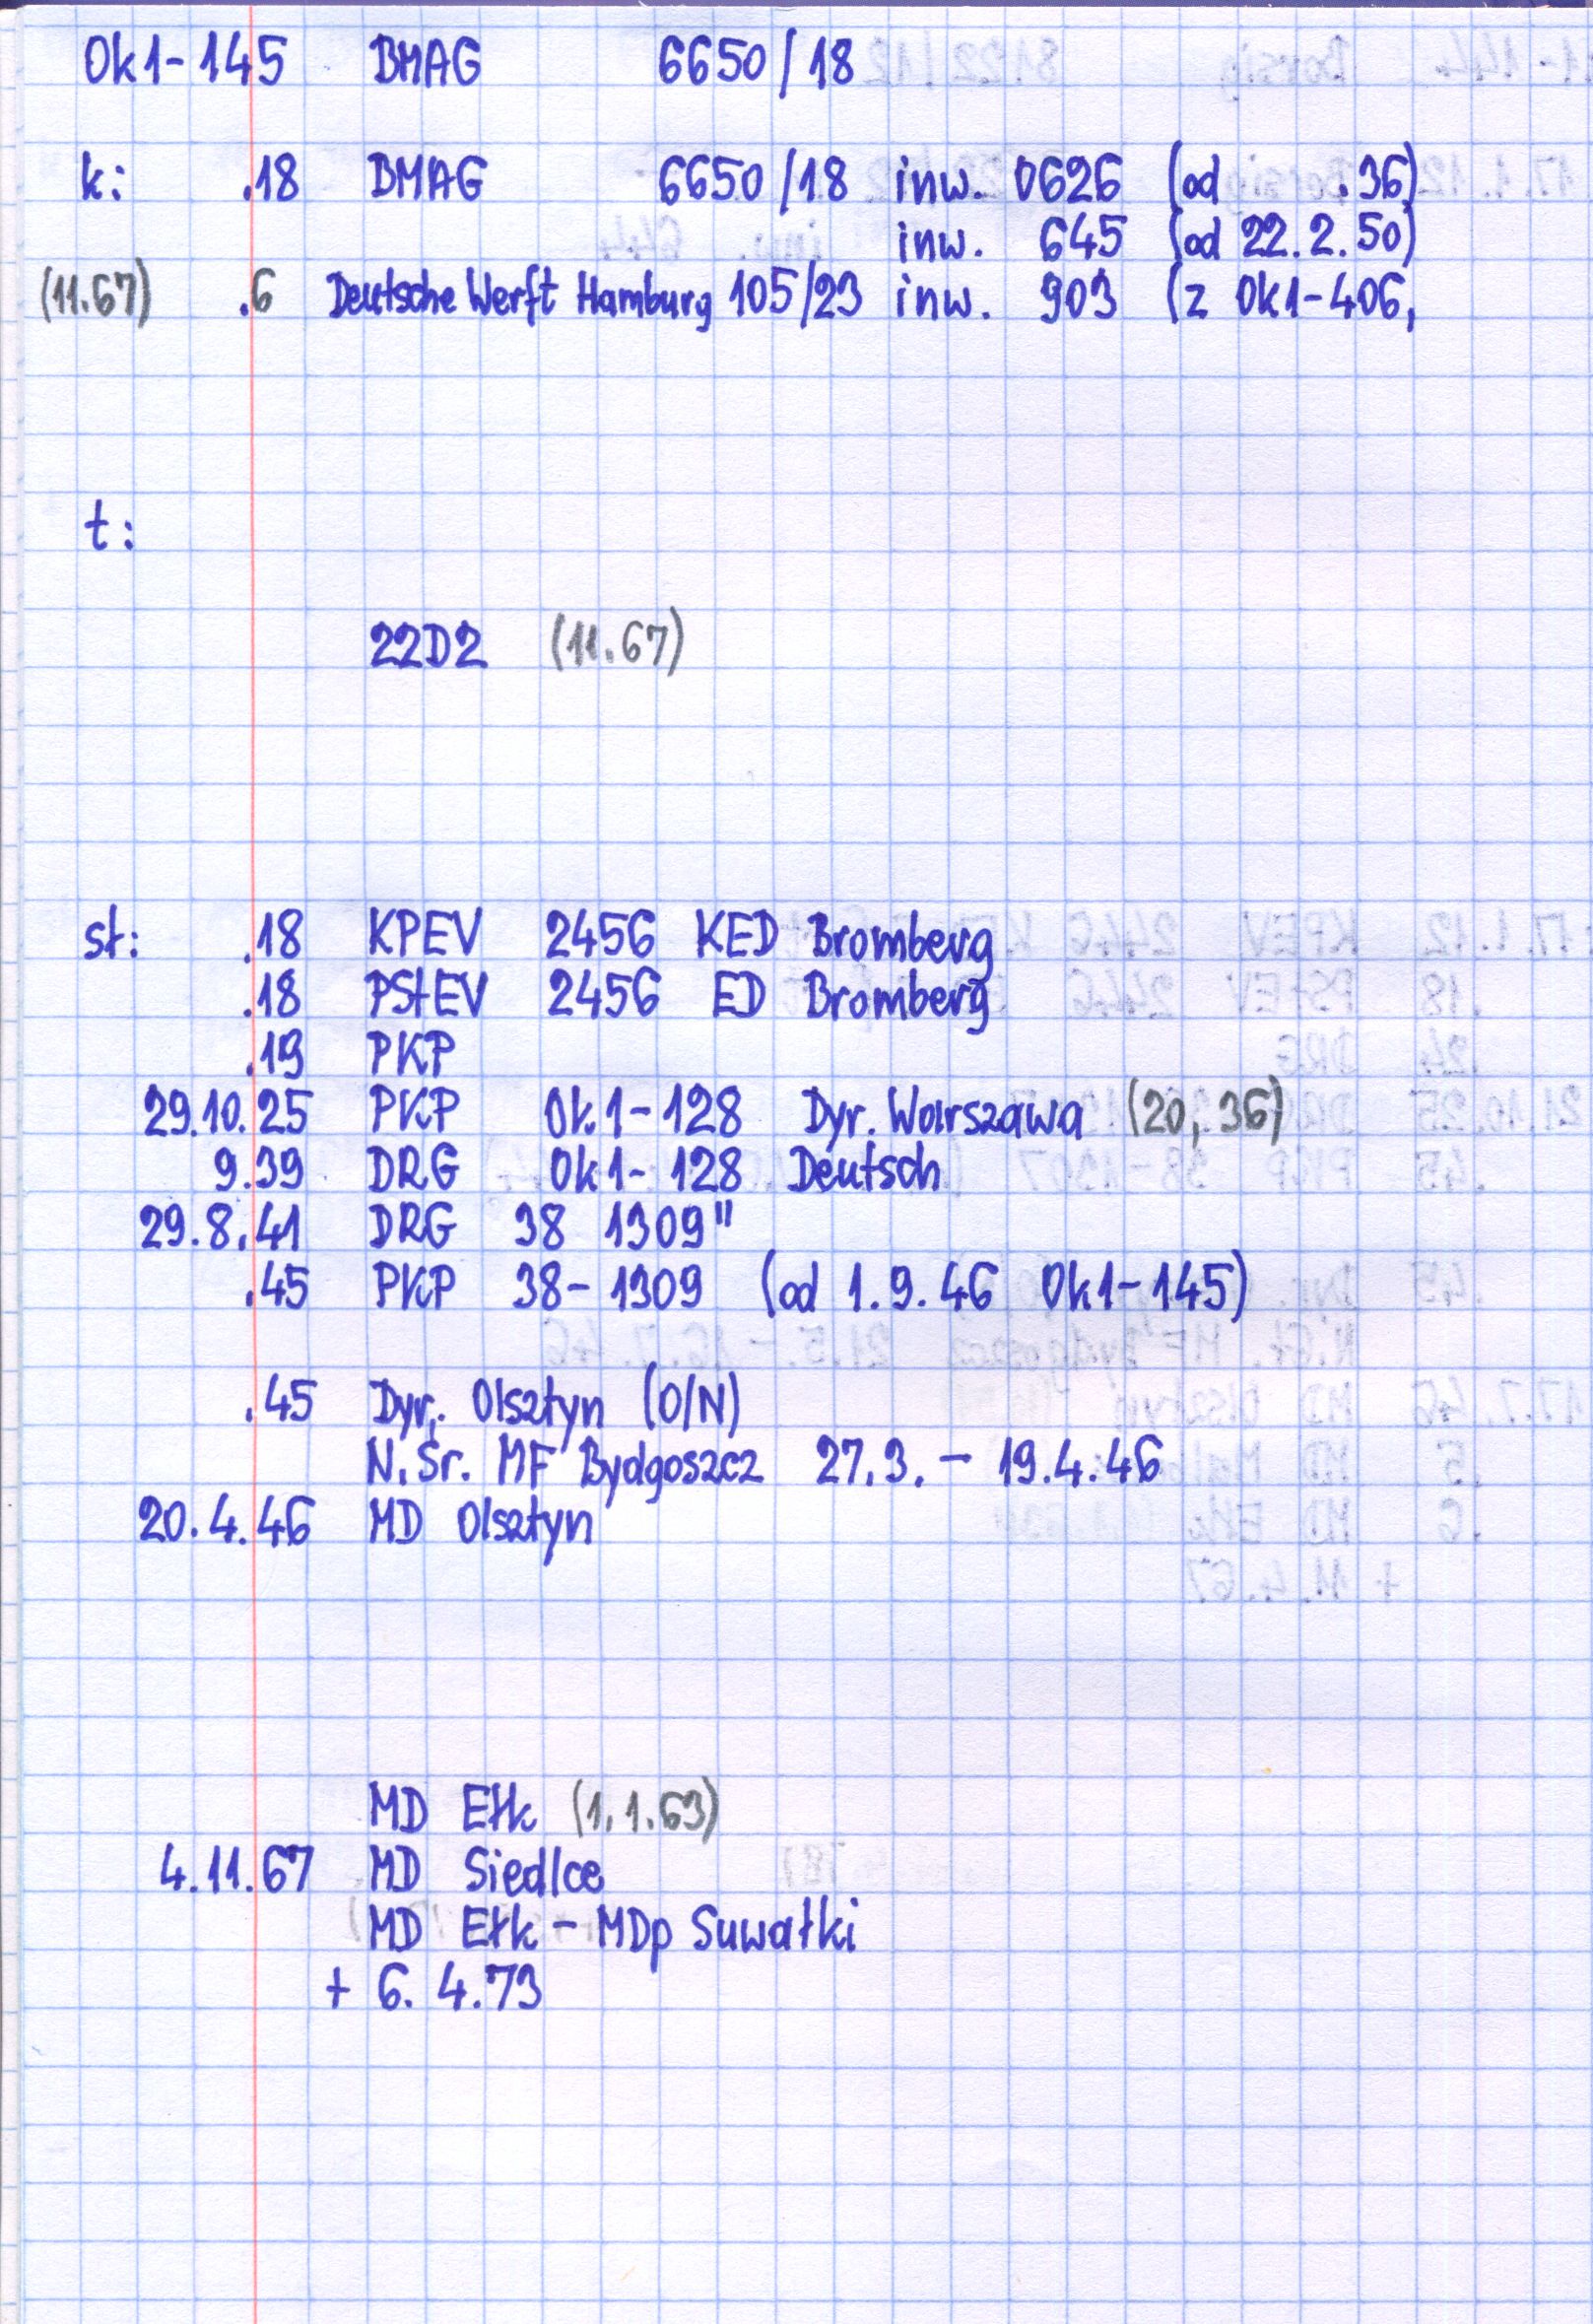 Ok1-145 BMAG 6650/18
k: .18 BMAG 6650/18 inw. 0626 (od .36)
inw. 645 (od 22.2.50)
(11.67) .6 Deutsche Werft Hamburg 105/23 inw. 903 (z Ok1-406,
t:
22D2 (11.67)
st: .18 KPEV 2456 KED Bromberg
.18 PStEV 2456 ED Bromberg
.19 PKP
29.10.25 PKP Ok1-128 Dyr. Warszawa (20, 36)
9.39 DRG Ok1-128 Deutsch
29.8.41 DRG 38 1309"
.45 PKP 38-1309 (od 1.9.46 Ok1-145)
.45 Dyr. Olsztyn (O/N)
N.Śr. MF Bydgoszcz 27.3. - 19.4.46
20.4.46 MD Olsztyn
MD Ełk (1.1.63)
4.11.67 MD Siedlce
MD Ełk - MDp Suwałki
+ 6. 4.73